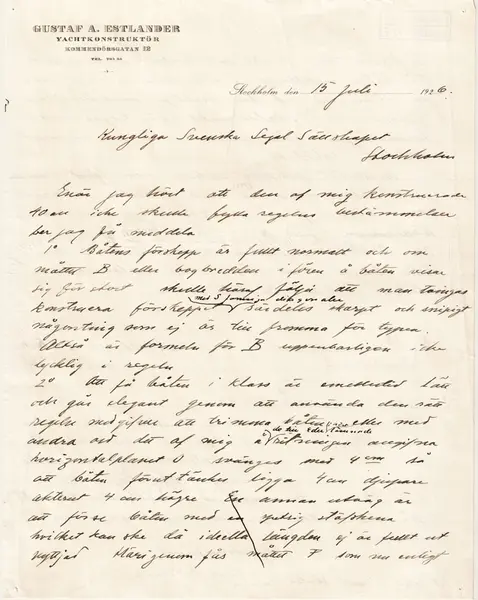 GUSTAF A. ESTLANDER
YACHTKONSTRUKTÖR
KOMMENDÖRSGATAN
Stockholm den 15 juli 1926.
Kungliga Svenska Segel Sällskapet
Stockholm
Enär jag hört att den af mig konstruerade
40 an icke skulle fylla regelns bestämmelser
ber jag få meddela
1° Båtens förskepp är fullt normalt och om
måttet B eller bogbredden i fören å båten visar
sig för stort skulle häraf följa att man tvingas
konstruera förskeppet särdeles skarpt och snipigt
någonting som ej är till fromma för typen.
Också är formeln för B uppenbarligen icke
lycklig i regeln
2° Att få båten i klass är emellertid lätt
och går elegant genom att använda den rätt
regeln medgifver att trimma båten eller med
andra ord det af mig å ritningen angifna
horizontalplanet 0 svänges med 4 cm så
att båten förut tänkes ligga 4 cm djupare
akterut 4 cm högre En annan utväg är
att förse båten med en spetsig stäfskena
hvilket kanske då ideella längden ej är fullt ut
nyttjad Härigenom fås måttet F som nu enligt